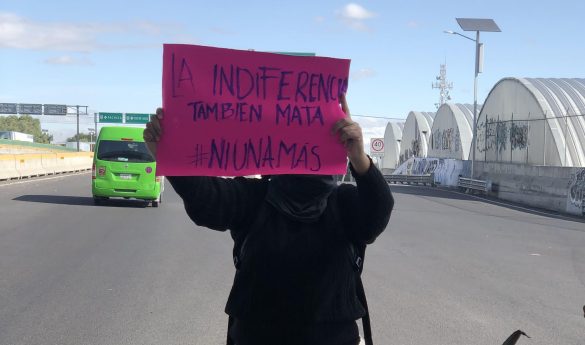 LA INDIFERENCIA
TAMBIEN MATA
#NIUNAMÁS
40